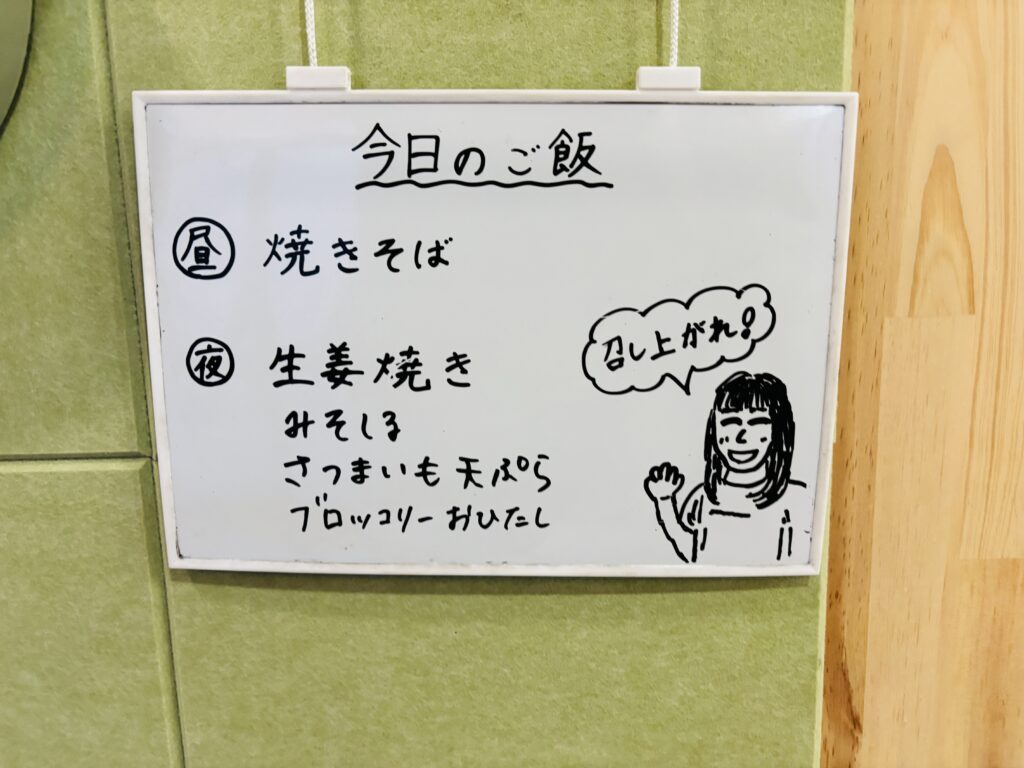 今日のご飯
昼 焼きそば
夜 生姜焼き
みそしる
さつまいも天ぷら
ブロッコリーおひたし
召し上がれ!